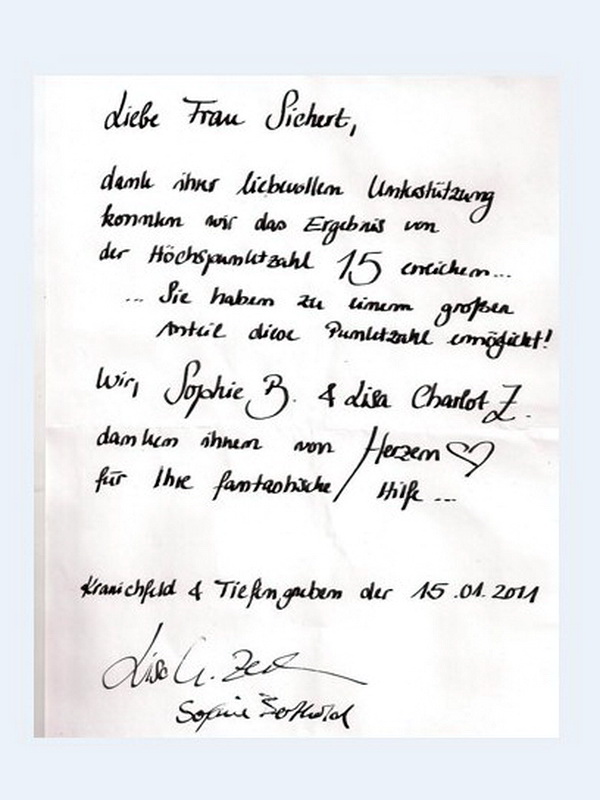 Liebe Frau Sichert,
dank ihrer liebevollen Unterstützung
konnten wir das Ergebnis von
der Höchspunktzahl 15 erreichen...
... Sie haben zu einem großen
Anteil diese Punktzahl ermöglicht!
Wir, Sophie B. & Lisa Charlot Z.
danken ihnen von Herzen ♡
für Ihre fantastische Hilfe ...
Kranichfeld & Tiefengruben der 15.01.2011
Lisa
Sophie